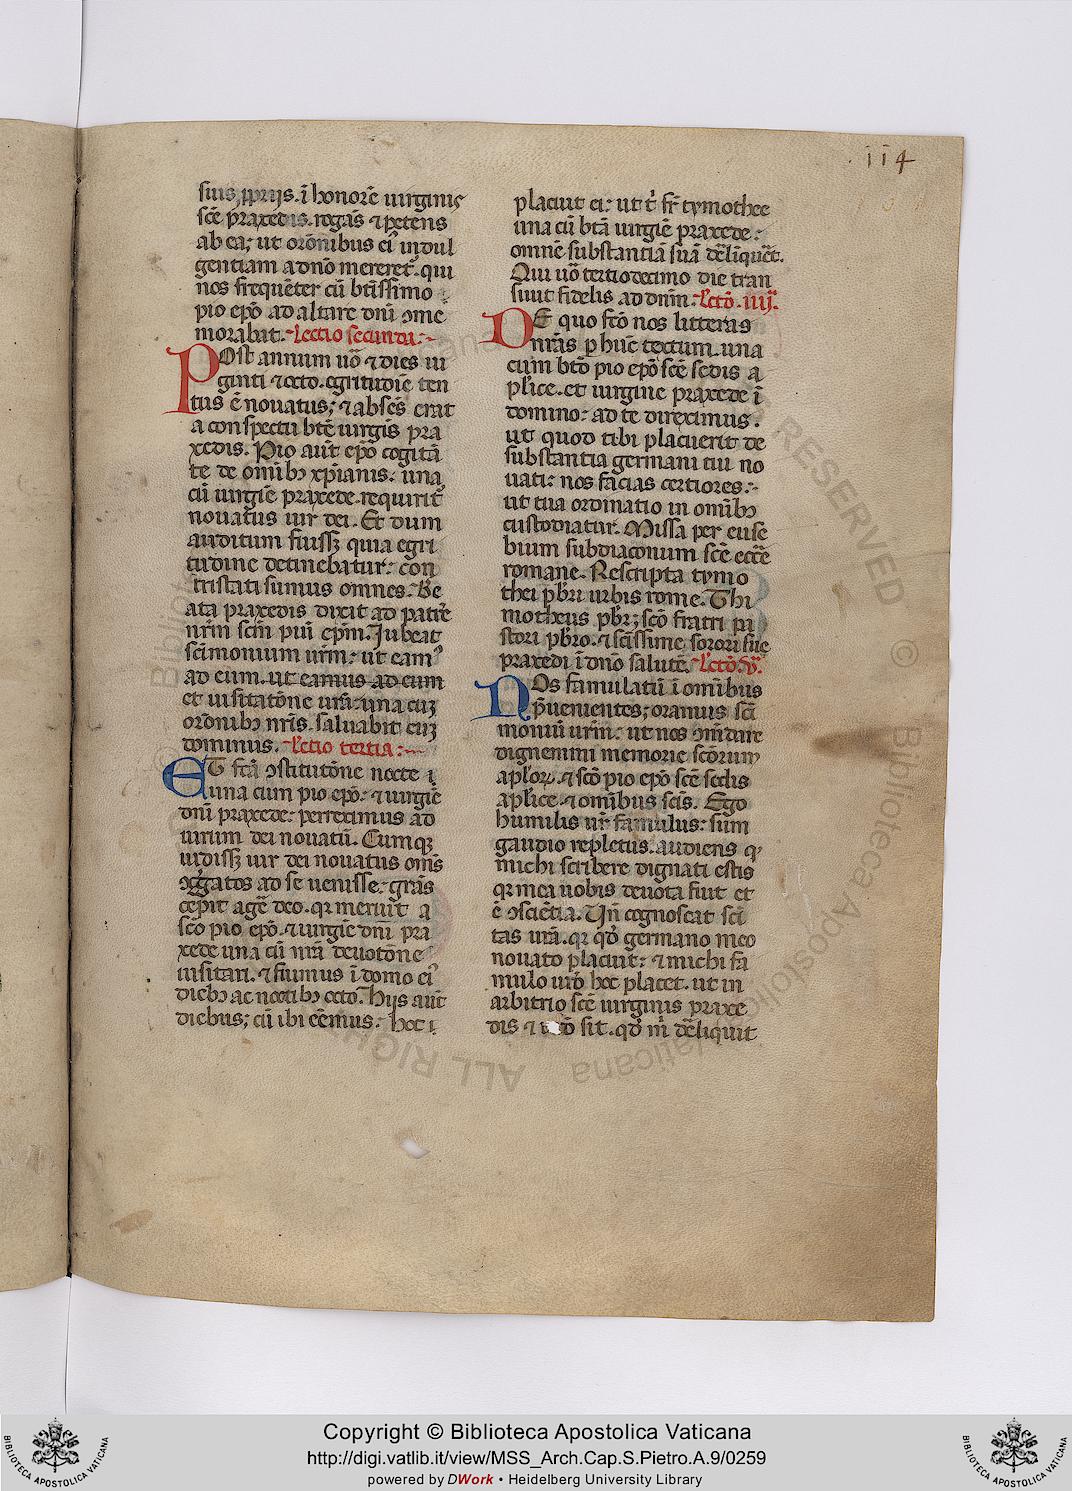 114
suis ꝓprijs. ī honorē uirginis
scē praxedis. rogās ⁊ petens
ab ea; ut oronibus eiꝰ indul
gentiam a dnō mereret᷑. qui
nos frequēter cū btīssimo
pio epō ad altare dnī ꝯme
morabat. Lectio secunda:~
POst annum uō ⁊ dies ui
ginti ⁊ octo. egritudīe ten
tus ē nouatus; ⁊ absēs erat
a conspectu btē uirgīs pra
xedis. Pio aūt epō cogitā
te de omībꝫ xp̄ianis: una
cū uirgīe praxede. requirit᷑
nouatus uir dei. Et dum
auditum fuissꝫ quia egri
tudine detinebatur: con
tristati sumus omnes. Be
ata praxedis dixit ad patrē
nrm̄ scm̄ piū ep̄m. Jubeat
sc̄imonium urm̄: ut eamꝰ
ad eum. ut eamus ad eum
et uisitatōne urā: una cuꝫ
orōnibꝫ nrīs. saluabit euꝫ
dominus. Lectio tertia:~
ET fctā ꝯstitutōne nocte ī
una cum pio epō: ⁊ uirgīe
dnī praxede: perreximus ad
uirum dei nouatū. Cumqꝫ
uidissꝫ uir dei nouatus omēs
ꝯg̃gatos ad se uenisse: grās
cepit agē deo. qr meruīt a
scō pio epō. ⁊ uirgīe dnī pra
xede una cū nrā deuotōne
uisitari. ⁊ fuimus ī domo eiꝰ
diebꝫ ac noctibꝫ octo. Hijs aūt
diebus; cū ibi eēmus: hoc ī
placuit ei: ut t' fr̄ tymothee
una cū btā uirgīe praxede:
omnē substantiā suā dēliquēt.
Qui uō tertiodecimo die tran
siuit fidelis ad dnm̄. Lectō. iiij.
DE quo fctō nos litteras
nrās ꝑ hūc tectum una
cum btō pio epō scē sedis a
plīce. et uirgine praxede ī
domino: ad te direximus.
ut quod tibi placuerit de
substantia germani tui no
uati: nos facias certiores:
ut tua ordinatio in omībꝫ
custodiatur. Missa per euse
bium subdiaconum scē eccē
romane. Rescripta tymo
thei pbrī urbis rome. Thi
motheus pbr; scō fratri pa
stori pbrō. ⁊ scīssime sorori sue
praxedi ī dnō salutē. Lectō. v.
NOs famulatū ī omībus
p̄uenientes; oramus sc̄i
moniū urm̄: ut nos ꝯm̄dare
dignemini memorie scōrum
aplōꝝ. ⁊ scō pio epō scē sedis
aplīce. ⁊ omībus scīs. Ego
humilis ur̄ famulus: sum
gaudio repletus. audiens qꝫ
michi scribere dignati estis
qr mea uobis deuota fuit et
ē ꝯsciētia. Un̄ cognoscat sc̄i
tas urā. qr qd̄ germano meo
nouato placuit: ⁊ michi fa
mulo urō hoc placet. ut in
arbitrio scē uirginis praxe
dis ⁊ sit. qd̄ m̄ dēliquit
Copyright © Biblioteca Apostolica Vaticana
http://digi.vatlib.it/view/MSS_Arch.Cap.S.Pietro.A.9/0259
powered by DWork • Heidelberg University Library
BIBLIOTECA APOSTOLICA VATICANA
BIBLIOTECA APOSTOLICA VATICANA